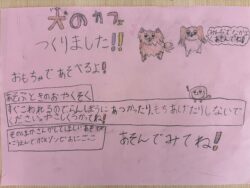 犬のカフェ
つくりました!!
みんなきてね
あそんでね!
おもちゃであそべるよ!
あそぶときのおやくそく
すぐこわれるのでらんぼうに
あつかったり、もちあげたりしないで
ください。やさしくつかってね!
あそんでみてね!